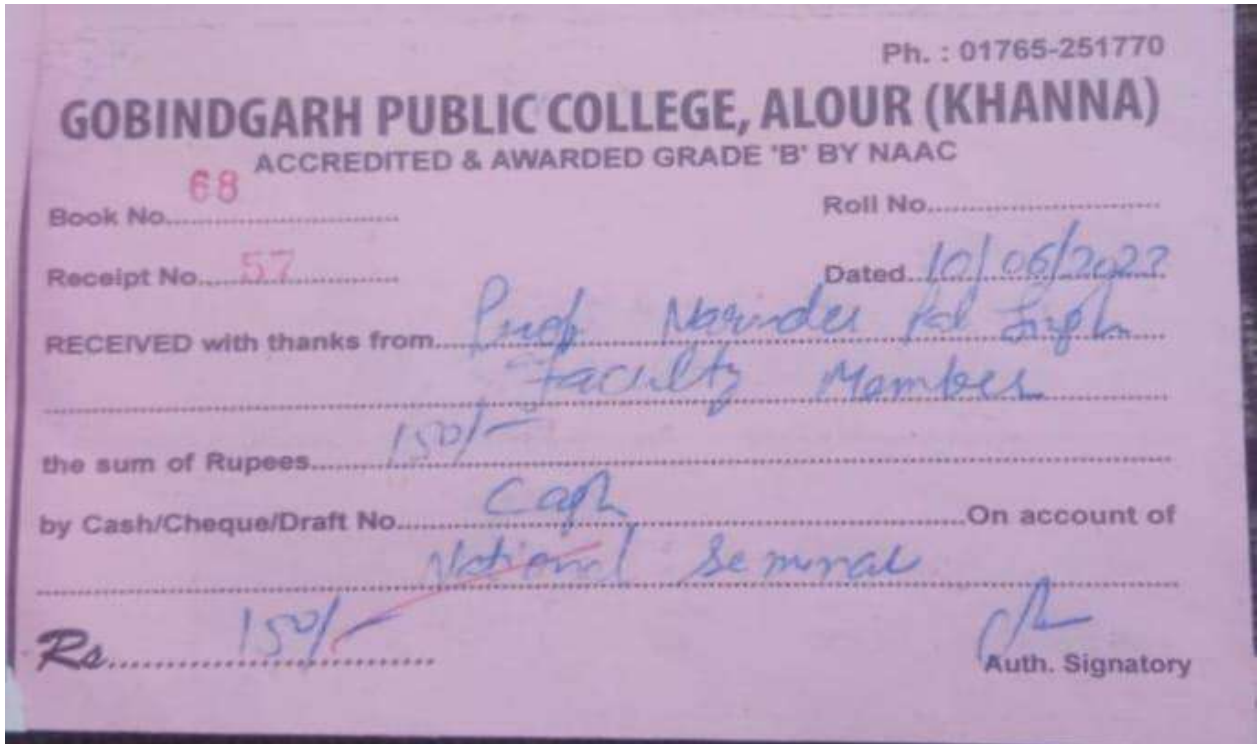 Ph. : 01765-251770
GOBINDGARH PUBLIC COLLEGE, ALOUR (KHANNA)
ACCREDITED & AWARDED GRADE 'B' BY NAAC
Book No. 68 Roll No.
Receipt No. 57 Dated 10/06/2022
RECEIVED with thanks from Prof Narinder Pal Singh
Faculty Member
the sum of Rupees 150/-
by Cash/Cheque/Draft No. Cash On account of
National Seminar
Rs. 150/-
Auth. Signatory